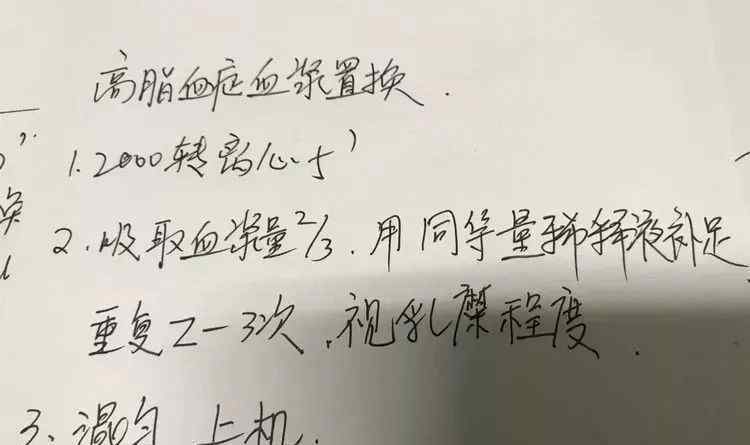 高脂血症血浆置换.
1.2000转离心5'
2.吸取血浆量2/3.用同等量稀释液补足
重复2-3次.视乳糜程度.
3、混匀 上机.